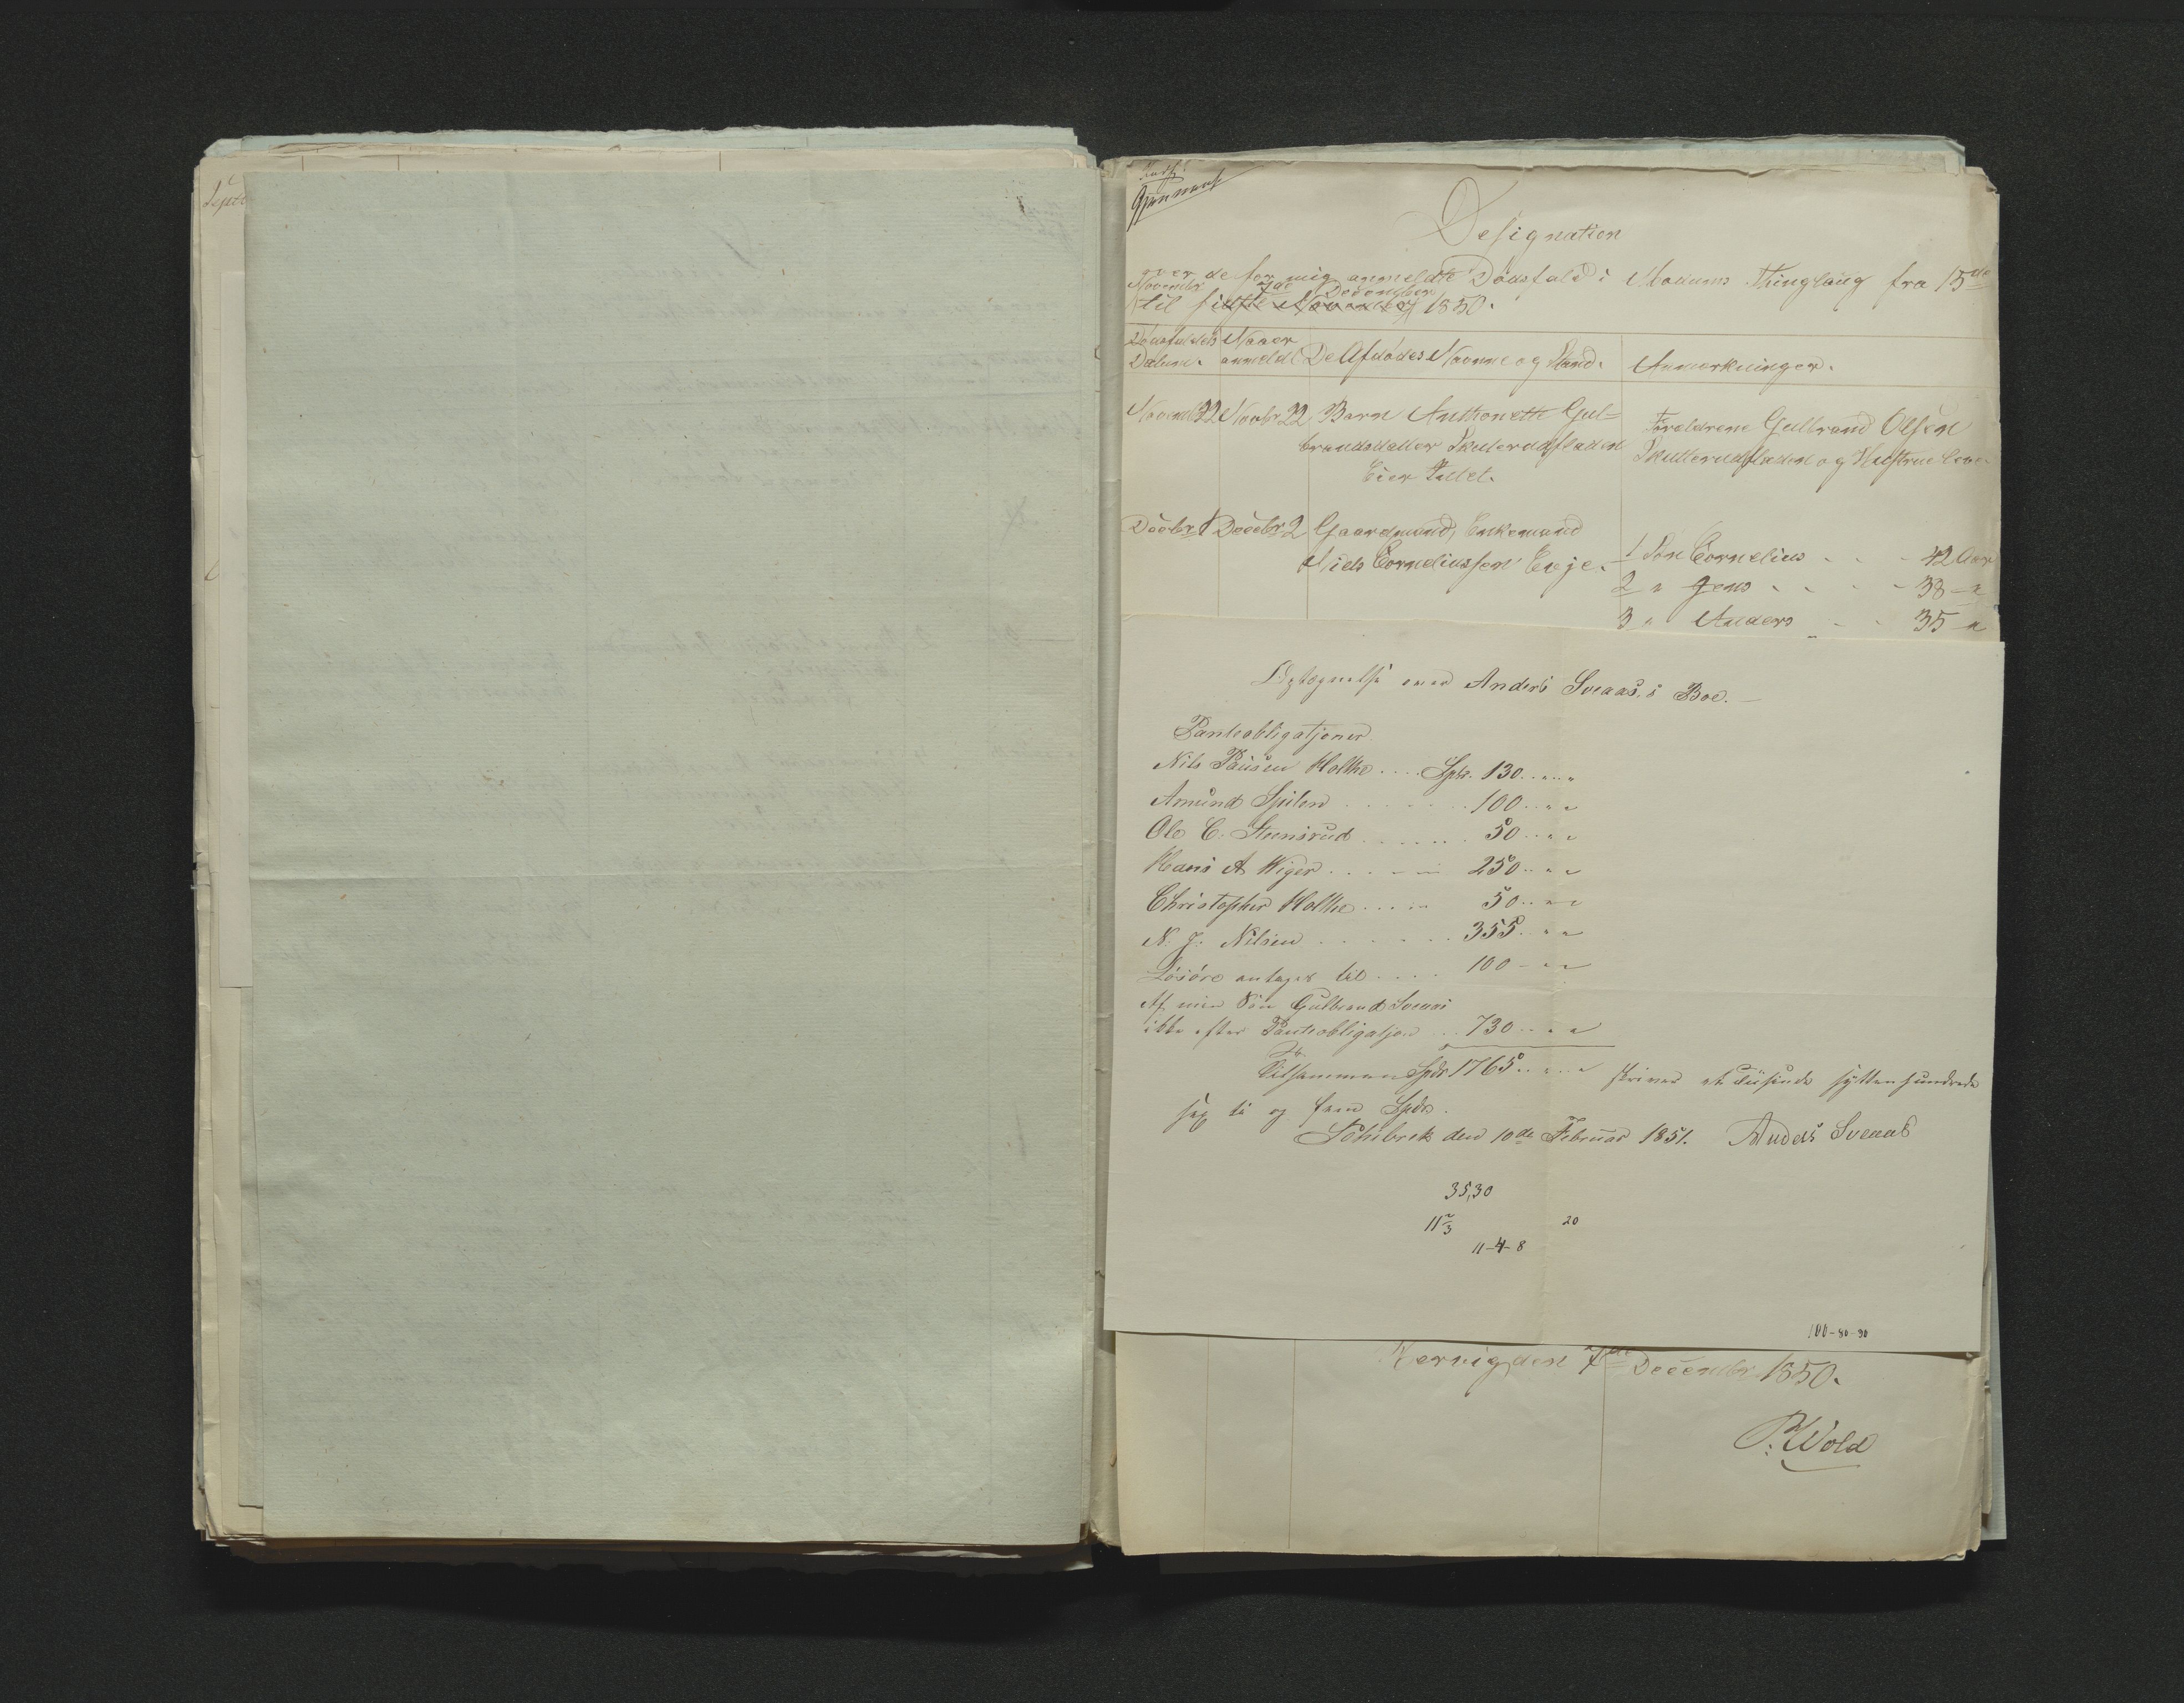 Septb
Designation
over de for mig anmeldte Dødsfald i Modums Thinglaug fra 15de
November til sidste November 7de December 1850.
Dødsfaldets Naaer
Datum. anmeldt De Afdødes Navne og Stand. Anmerkninger.
Novembr 22 Novbr 22 Barn Anthonette Gul-
brandsdatter Skuterudfladen
Eier Intet.
Forældrene Gulbrand Olsen
Skutterudfladen og Hustrue lever
Decbr 1 Decebr 2 Gaardmand, Enkemand
Niels Corneliussen Evje.
1 Søn Cornelius - - - 42 Aar
2 " Jens - - - 38 - "
3 " Anders - - 35 "
Optegnelse over Anders Sveaas,s Boe. -
Panteobligatjoner
Nils Paüsen Holthe .... Spdr. 130..."..."
Amünd Spilen ....... 100.. " "
Ole C. Steensrüd ....... 50.. " "
Hans A Wiger ...... 250.. " "
Christopher Holthe ..... 50.. " "
N. J. Nilsen ....... 355.. " "
Løsøre antaget til .... 100 - " "
Af min Søn Gulbrand Sveaas
ikke efter Panteobligatjon ... 730.. " "
Tilsammen Spdr 1765.. " .. " skriver et Tüsinde sytten hundrede
sex ti og fem Spdr.
Schibrek den 10de Februar 1851. Anders Sveaas
35,30
11 2/3 20
11-4-8
100-80-90
Kervig den 7de Decembr 1850.
P. Wold